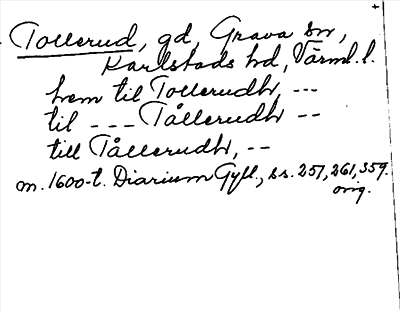 Tollerud, gd, Grava sn,
Karlstads hd, Värml. l.
hem til Tollerudh, ---
til --- Tållerudh --
till Tållerudh, --
m. 1600-t. Diarium Gyll., ss. 257, 261, 359.
orig.